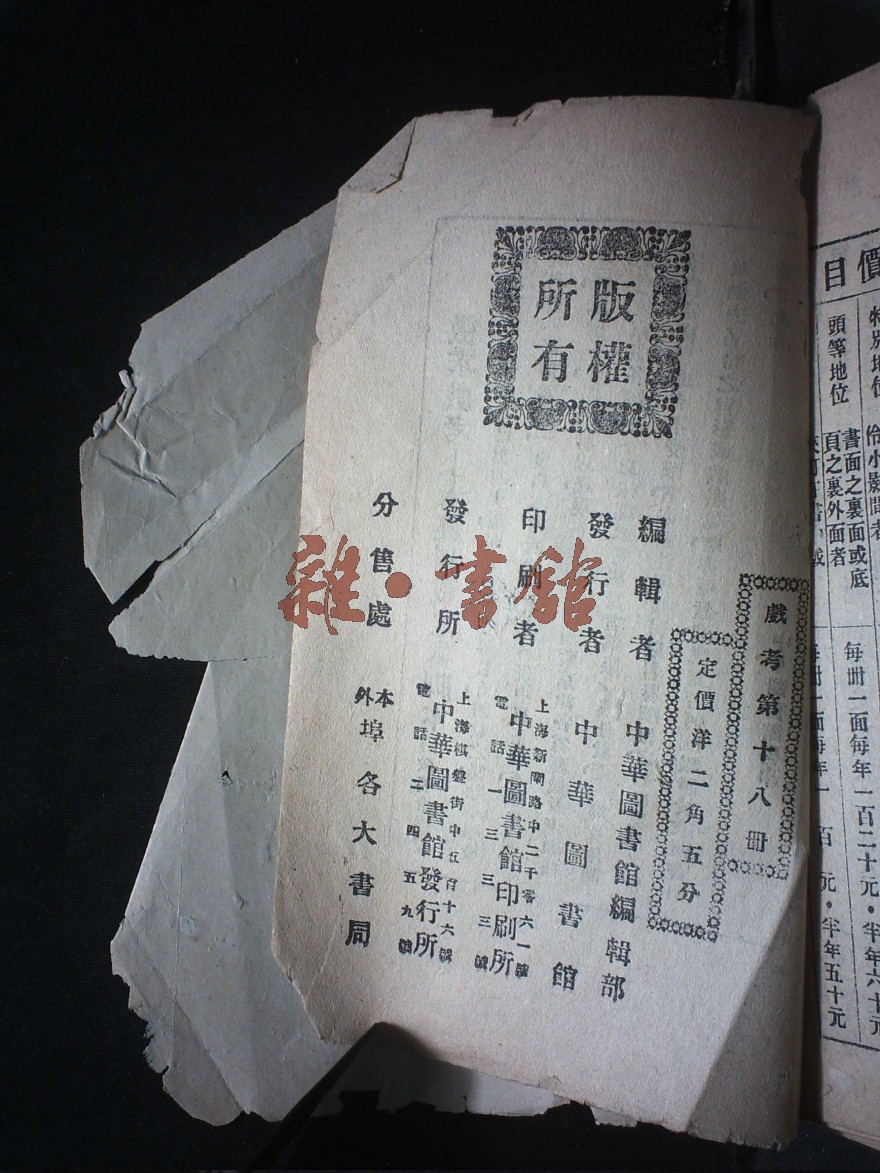 版權
所有
戲考第十八冊
定價洋二角五分
編輯者 中華圖書館編輯部
發行者 中華圖書館
印刷者 上海新閘路中二千零六一號
中華圖書館印刷所
電話一三三三號
發行所 上海棋盤街中五百十六號
中華圖書館發行所
電話三四五九號
分售處 本外埠各大書局
雜·書館
價目
特別地位
伶小影間者
每冊一面每年一百二十元·半年六十元
頭等地位
書面之裏面或底
頁之裏外面者
每冊一面每年一百元·半年五十元